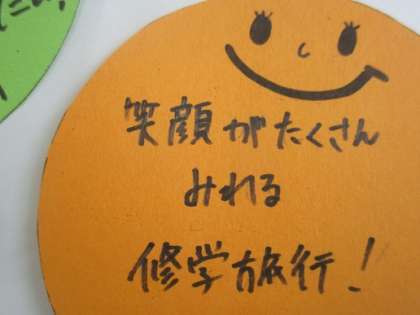 笑顔がたくさん
みれる
修学旅行！